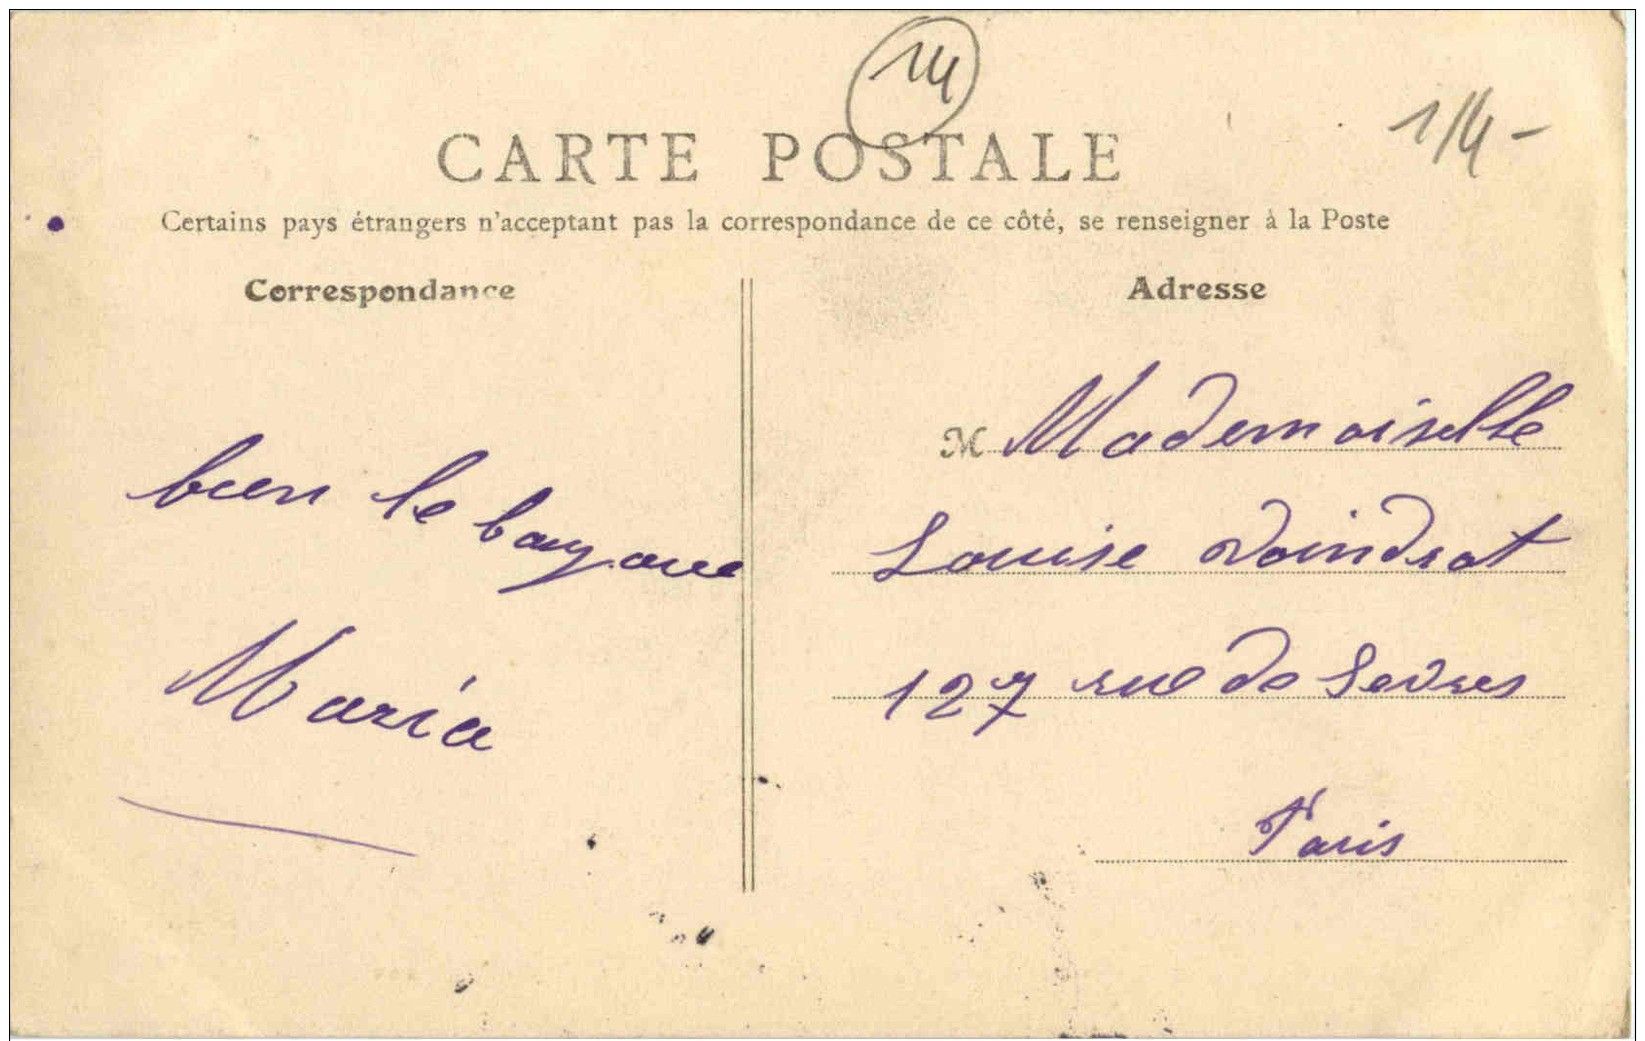 14
1/4-
CARTE POSTALE
Certains pays étrangers n'acceptant pas la correspondance de ce côté, se renseigner à la Poste
Correspondance
Adresse
bien le
Maria
M Mademoiselle
Louise Doindrot
127 rue de Sevres
Paris